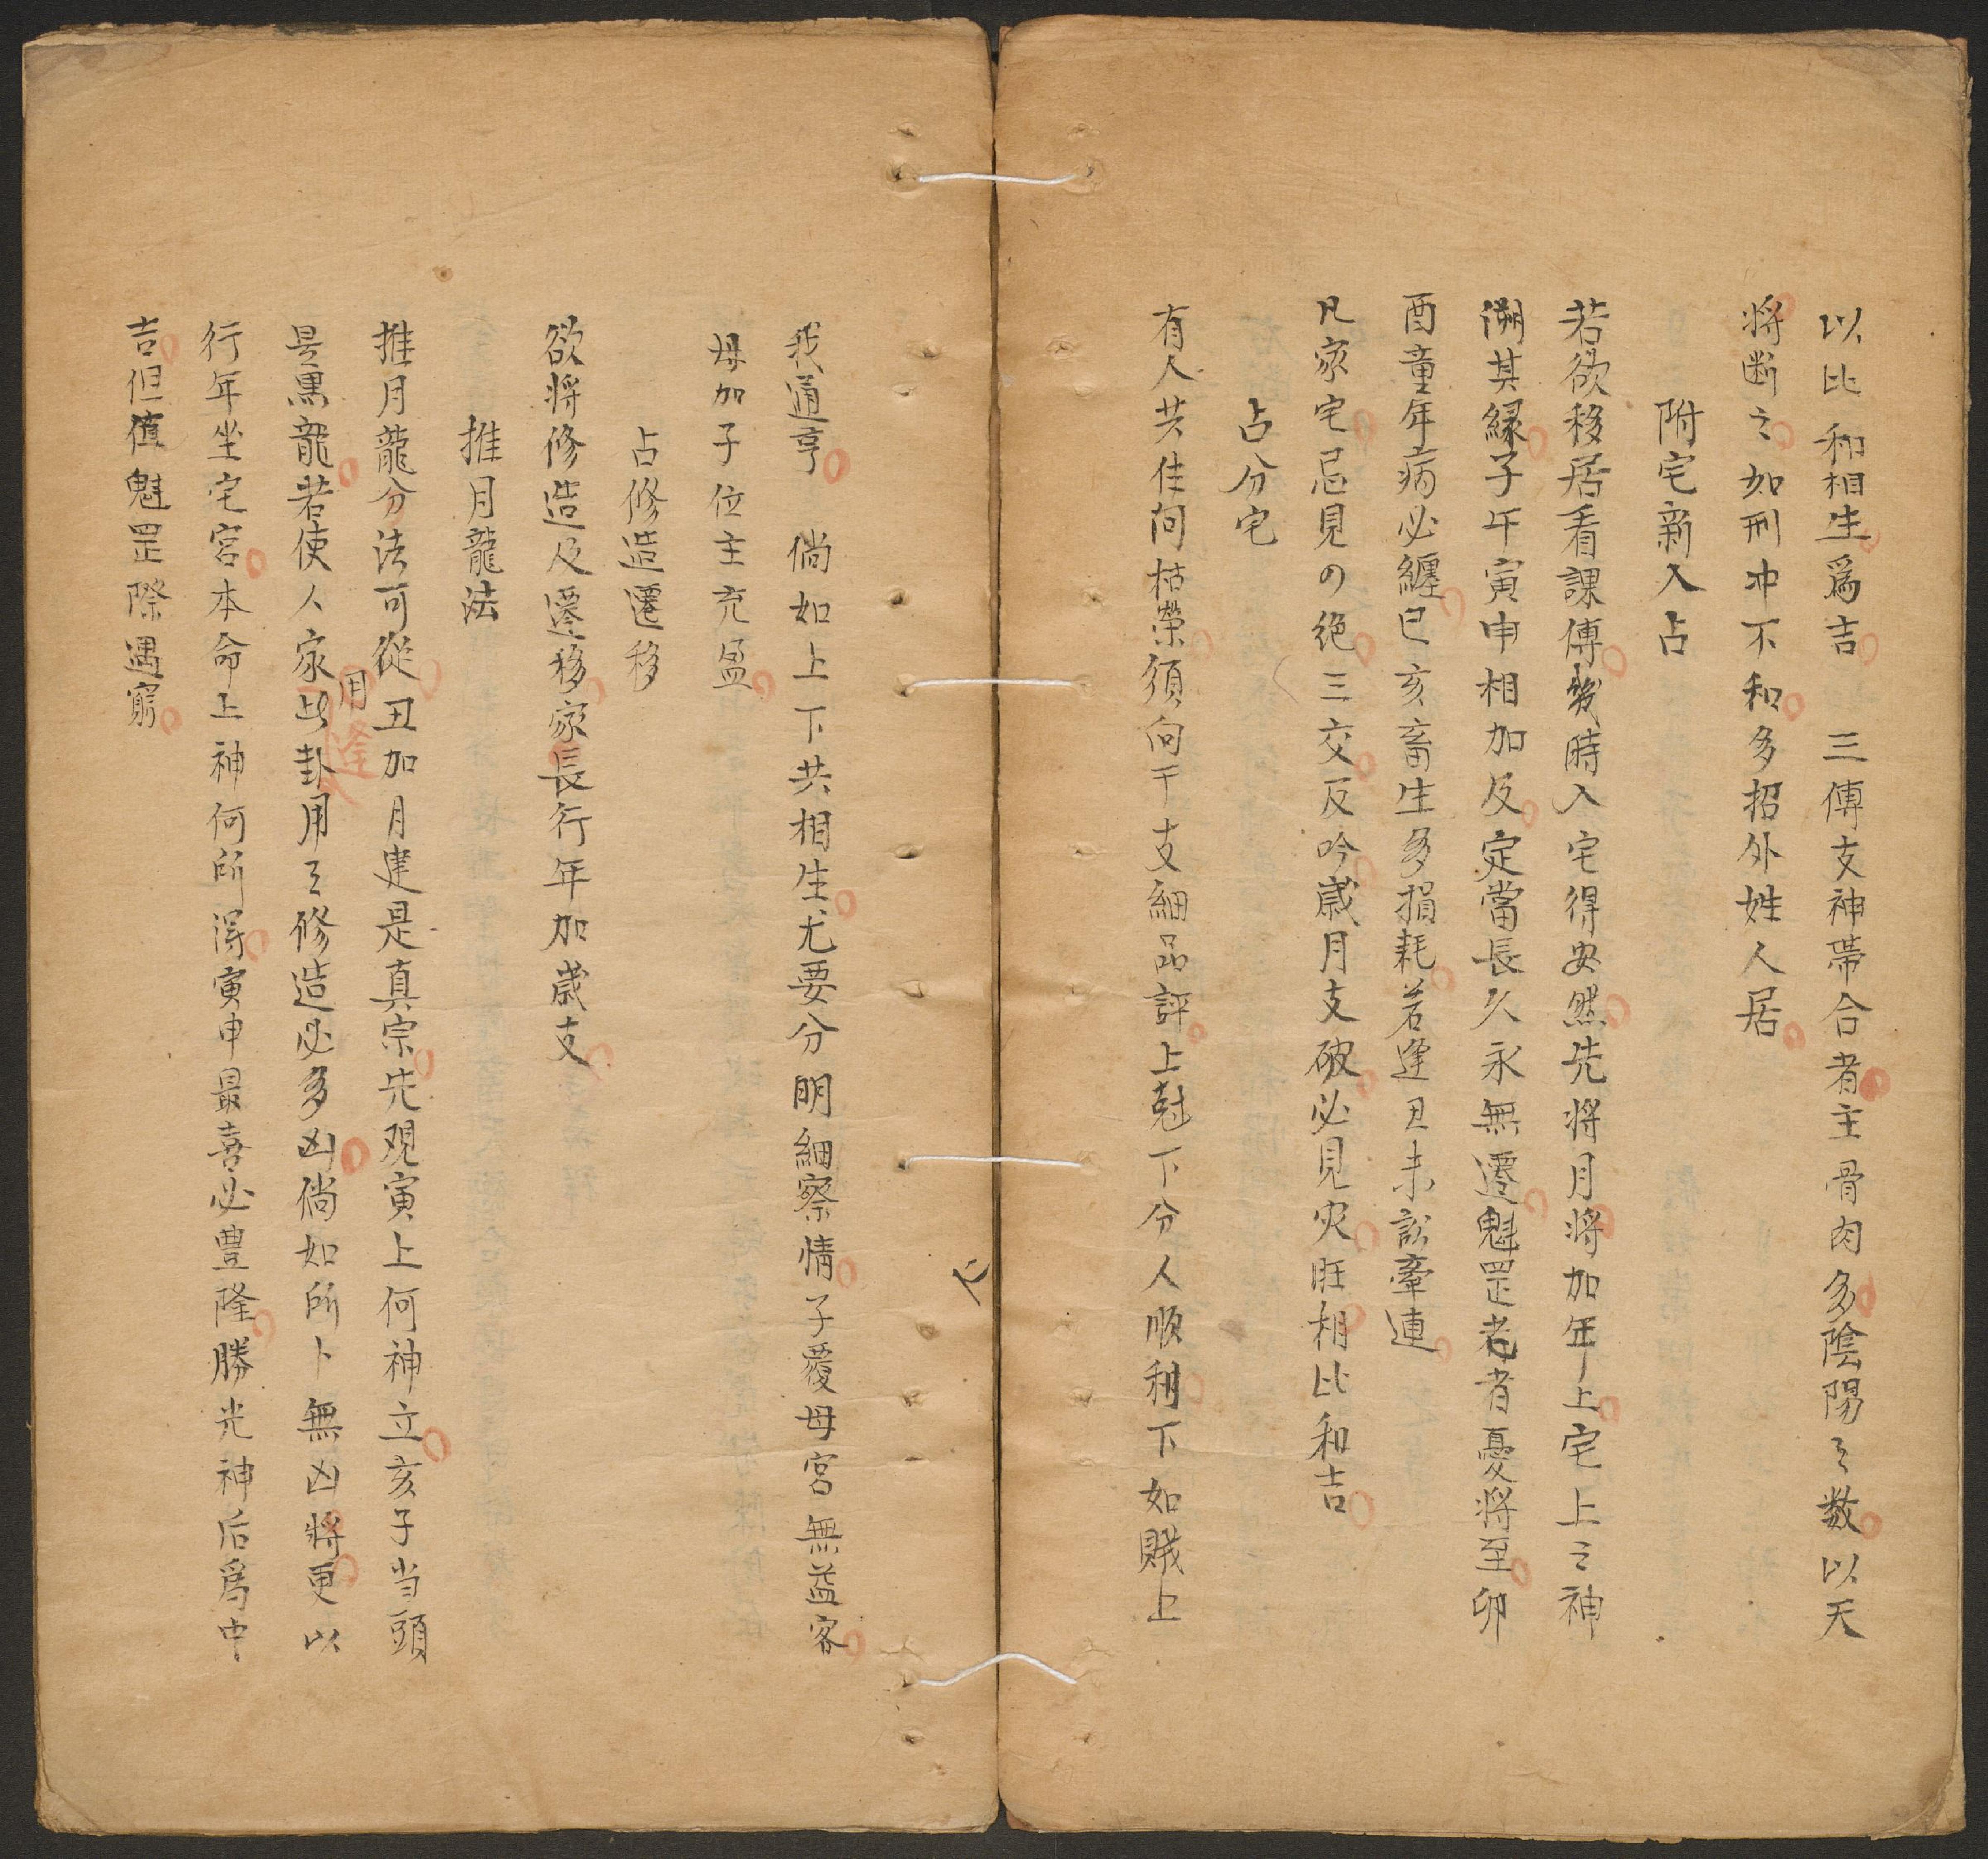 以比和相生爲吉　三傳支神帶合者主骨肉多陰陽之数以天
将断之如刑冲不和多招外姓人居
附宅新入占
若欲移居看課傳幾時入宅得安然先将月将加年上宅上之神
溯其縁子午寅申相加及定當長久永無遷魁罡老者憂将至卯
酉童年病必纏巳亥畜生多損耗若逢丑未訟牽連
凡家宅忌見四絶三交反吟歲月支破必見灾旺相比和吉
占分宅
有人共住问枯榮須向干支細品評上尅下分人順利下如賊上
我通亨　倘如上下共相生尤要分明細察情子覆母宮無益客
母加子位主充盈
占修造遷移
欲将修造及遷移家長行年加歲支
推月龍法
推月龍分法可從丑加月建是真宗先观寅上何神立亥子当頭
是黑龍若使人家逢此卦用之修造必多凶倘如所卜無凶將更以
用
行年坐宅宮本命上神何所得寅申最喜必豊隆勝光神后爲中
吉但值魁罡際遇窮